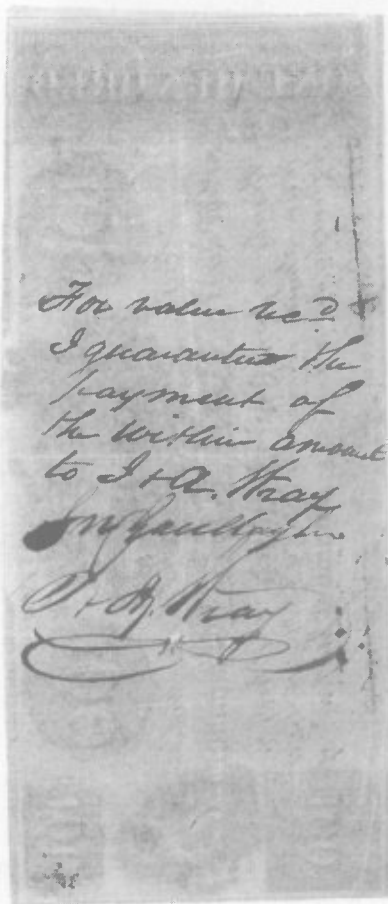 For value rec.d
I guarantee the
payment of
the within amount
to I & A. Wray
I & A. Wray